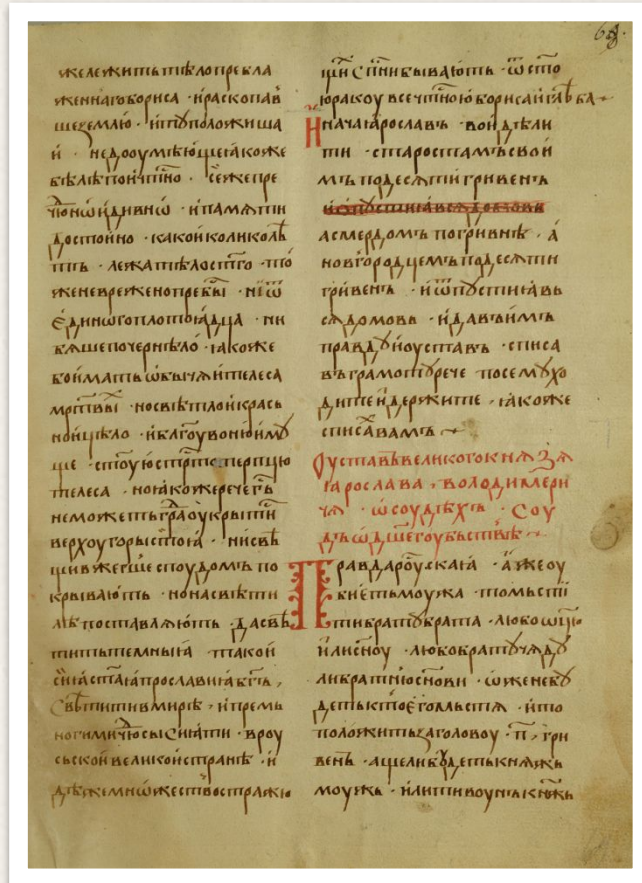 68
жележитьтѣлопребла
женнагобориса · ираскопав̾
шеземлю · итꙋположиша
й · недооумѣющеꙗкоже
бѣлѣпоичтⷭ҇но · сежепре
чюⷣноѡ̑идивноѡ̑ · ипамѧти
достойно · какоиколиколѣ
тъ · лежатѣлостⷭ҇го · тѡ
женевреженопребы · ниѿ
единогоплотоꙗдца · ни
бѧшепочернѣло · ꙗкоже
боймать ѡбычѧйтелеса
мр҃твы · носвѣтлойкрасъ
нойцѣло · иблагоувонюимꙋ
ще · стоуюстрⷭ҇тотерпцю
телеса · ноꙗкожеречегь
неможетьградоукрытиⷭ
верхоугорыстоꙗ · нисвѣ
щивжегшеспоудомъпо
крывають · нонасвѣти
лѣпоставлѧють · дасвѣ
тить темныꙗ · такои
сиꙗстаꙗпрославиꙗбг҃ъ ·
свѣтитивмирѣ · ипремъ
ногимичюⷣсысиꙗти · вроу
сьскойвеликойстранѣ · и
дѣжемножествостражю
щии сп҃нибывають · ѿсто
юракоувсечтⷭ҇ною бориса и глѣба
иначаꙗрославъ · войдѣли
ти · старостамъсвои
мъ подесѧтигривенъ
асмердомъ погривнѣ · а
новгородцемъ подесѧти
гривенъ · иѿпустиꙗвь
сѧдомовь · идавъимъ
правдꙋиоуставъ · списа
въграмотꙋрече посемꙋхо
дитеидержите · ꙗкоже
списаⷯвамъ
оуставъвеликогокнѧзѧ
ꙗрослава · володимери
чѧ · ѡсоудѣхъ · соу
дъѡдш҃егоубьствѣ
Правдароу̑скаꙗ · ажеоу
бьетьмоужа · томьсти
тибратубрата · любоѡц҃ю
илисн҃оу · любобратꙋчѧдꙋ
либратнюсн҃ови · ѡженебꙋ
детьктоегомьстѧ · ито
положитьзаголовоу · п҃ · гри
венъ · ащелибꙋдетькнѧжь
моужь · илитивоунъкнѧжь